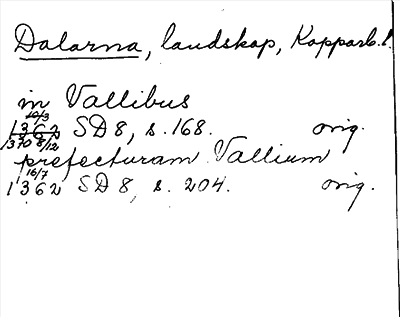 Dalarna, landskap, Kopparb. l.
in Vallibus
10/3
1362 SD 8, s. 168. orig.
1370 8/12
prefecturam Vallium
16/7
1362 SD 8, s. 204. orig.